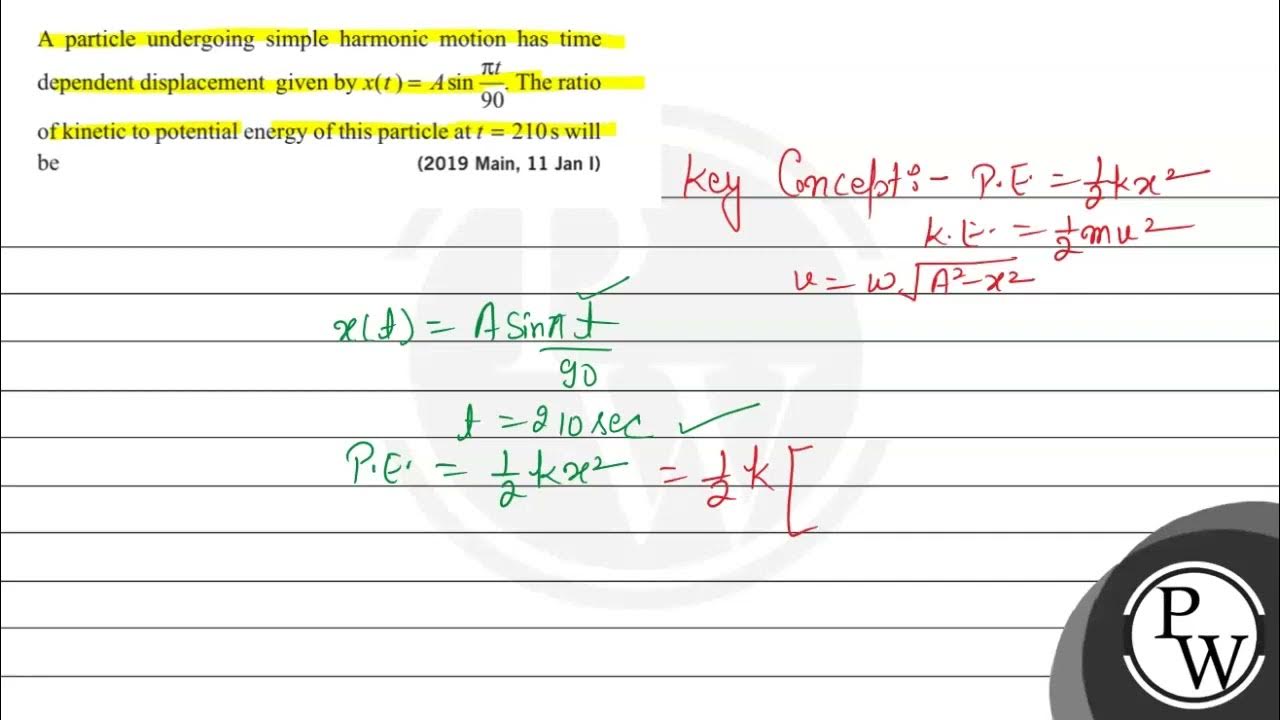 A particle undergoing simple harmonic motion has time
dependent displacement given by x(t) = A sin πt/90. The ratio
of kinetic to potential energy of this particle at t = 210 s will
be (2019 Main, 11 Jan I)
Key Concept:- P.E. = 1/2 kx²
K.E. = 1/2 mv²
v = w√A²-x²
x(t) = A sin π t/90
t = 210 sec ✓
P.E. = 1/2 kx² = 1/2 k [
PW
PW